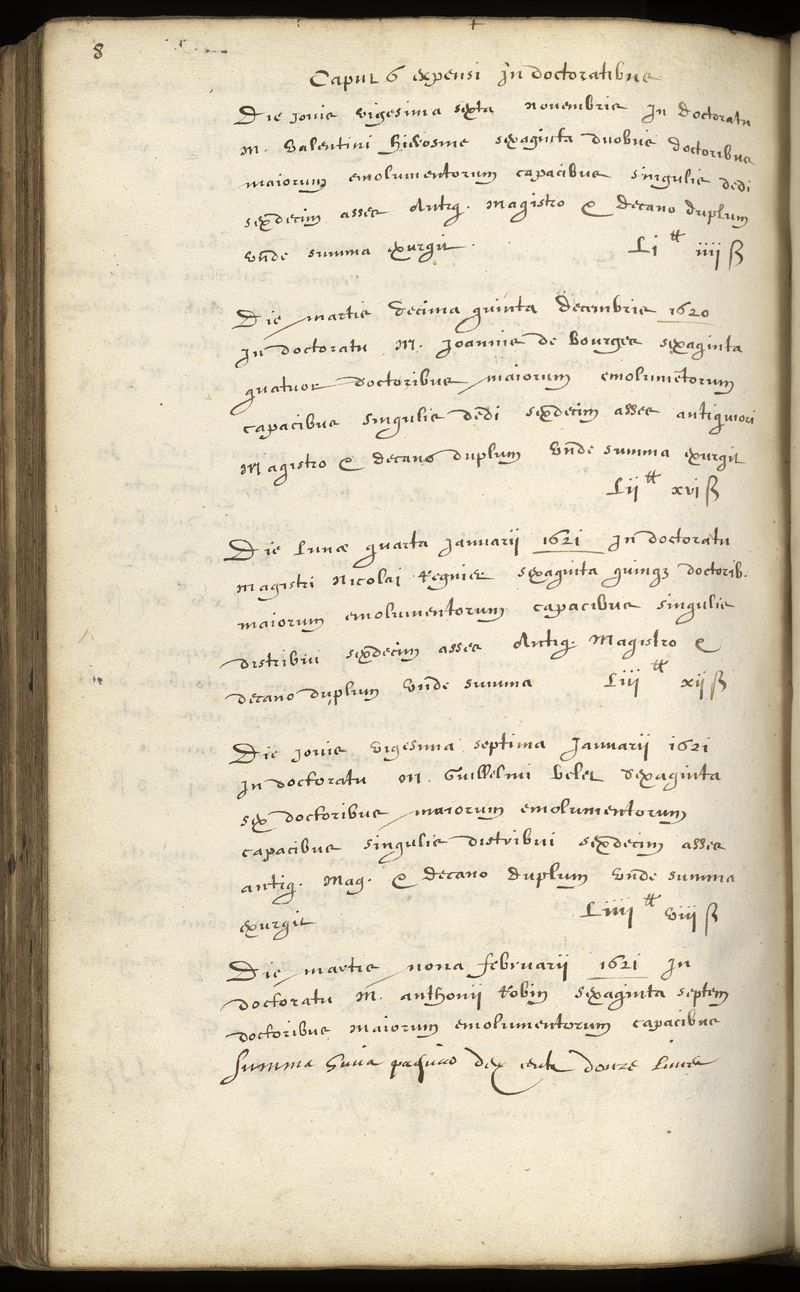 8
Caput 6 expensi In doctoratibus
Die jovis vigesima sexta novembris In doctoratu
M. Valentini Hierosme sexaginta duobus doctoribus
maiorum emolumentorum capacibus singulis dedi
sexdecim asses Antiq. Magistro & decano duplum
vn̄de summa exurgit. Li ₶ iiii ß
Die martis decima quinta decembris 1620
In doctoratu M. Joannis de Bourges sexaginta
quatuor doctoribus maiorum emolumētorum
capacibus singulis dedi sexdecim asses antiquiori
Magistro & decano duplum vn̄de summa exurgit
Lii ₶ xvi ß
Die Lunæ quarta Januarii 1621 In doctoratu
magistri Nicolai Regnier sexaginta quinq; doctorib.
maiorum emolumentorum capacibus singulis
distribui sexdecim asses Antiq. Magistro &
decano duplum vn̄de summa Liii ₶ xii ß
Die jovis vigesima septima Januarii 1621
In doctoratu M. Guillelmi Velet sexaginta
sex doctoribus maiorum emolumentorum
capacibus singulis distribui sexdecim asses
antiq. Mag. & decano duplum vn̄de summa
exurgit Liiii ₶ viii ß
Die martis nona februarii 1621 In
doctoratu M. anthonii Robin sexaginta septem
doctoribus maiorum emolumentorum capacibus
Summa douze